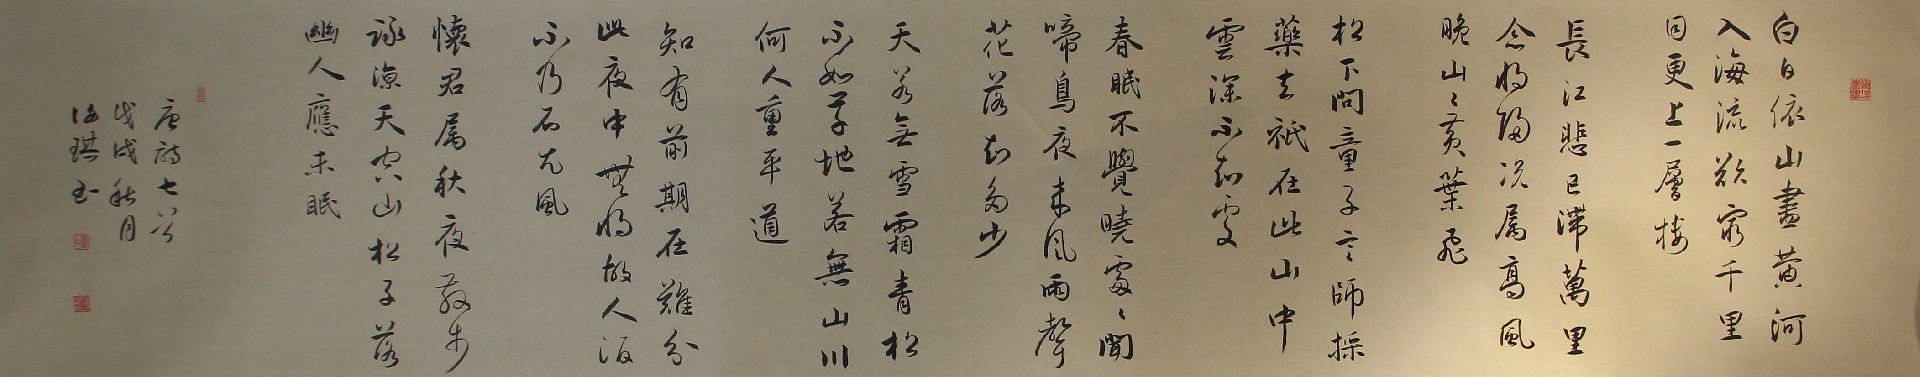 白日依山盡黄河
入海流欲窮千里
目更上一層樓
長江悲已滯萬里
念將歸況属高風
晚山山黄葉飛
松下問童子言師採
藥去祇在此山中
雲深不知處
春眠不覺曉處處聞
啼鳥夜来風雨聲
花落知多少
天若無雪霜青松
不如草地若無山川
何人重平道
知有前期在難分
此夜中無將故人酒
不及石尤風
懷君属秋夜散步
詠涼天空山松子落
幽人應未眠
唐詩七首
戊戌秋月